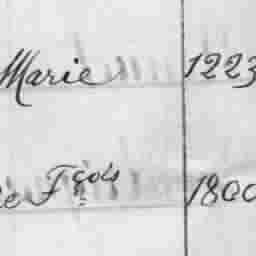 Marie 1223
Fçois 1800